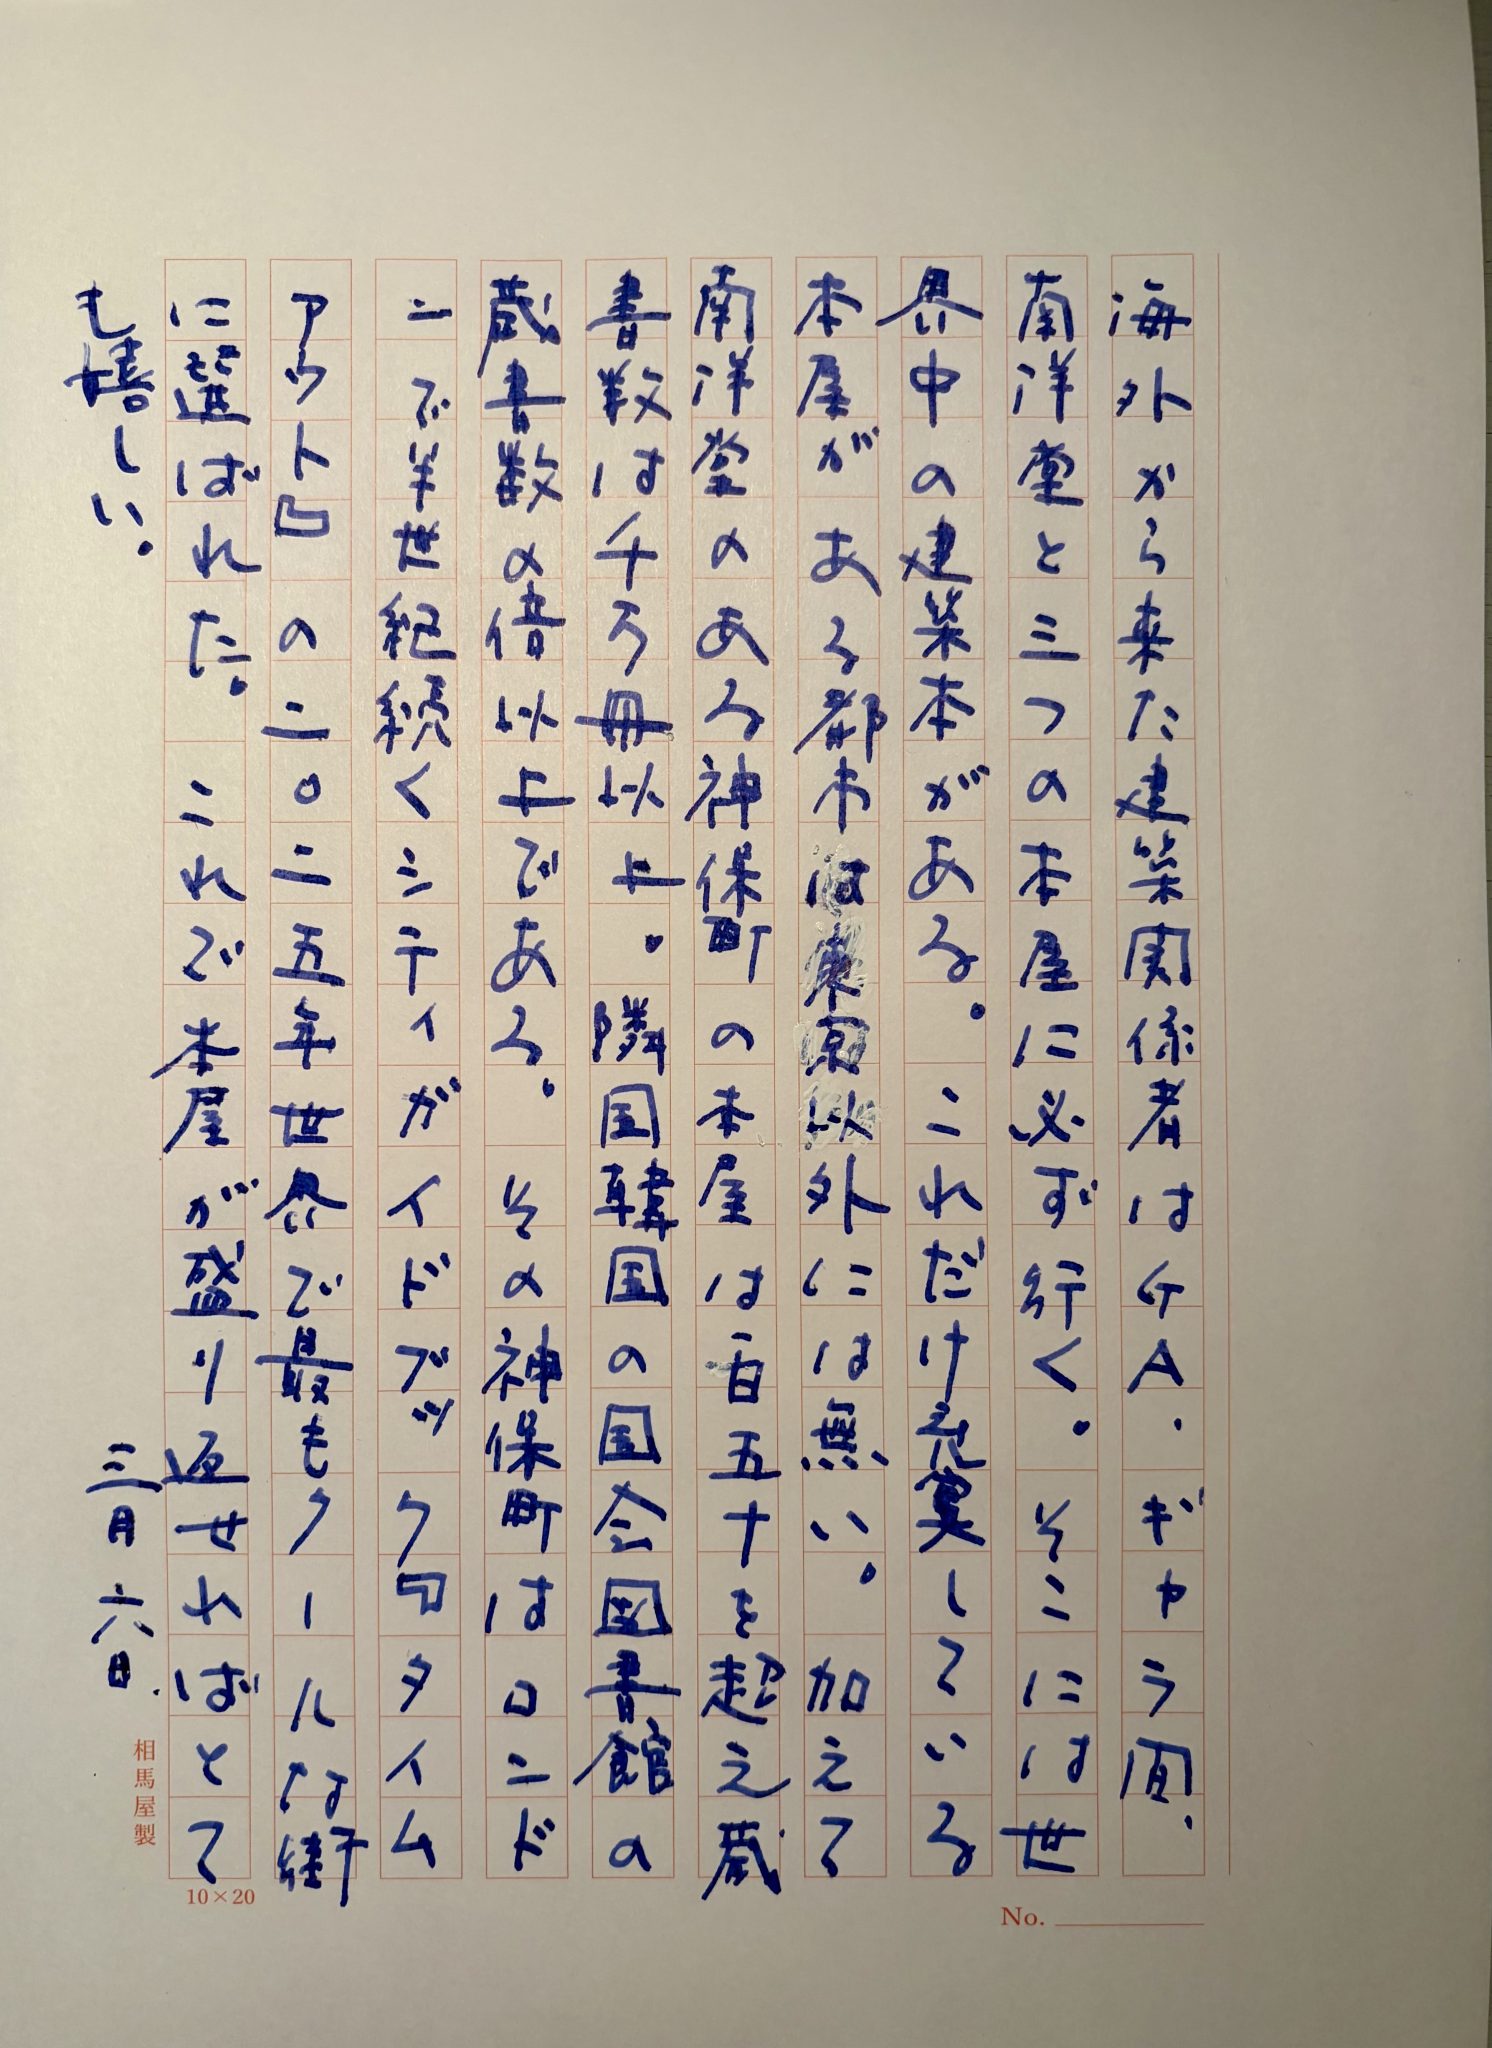 海外から来た建築関係者はGA・ギャラ間、
南洋堂と三つの本屋に必ず行く。そこには世
界中の建築本がある。これだけ充実している
本屋がある都市は東京以外には無い。加えて
南洋堂のある神保町の本屋は百五十を超え蔵
書数は千万冊以上。隣国韓国の国会図書館の
蔵書数の倍以上である。その神保町はロンド
ンで半世紀続くシティガイドブック『タイム
アウト』の二〇二五年世界で最もクールな街
に選ばれた。これで本屋が盛り返せればとて
も嬉しい。
三月六日.
相馬屋製
10×20
No.